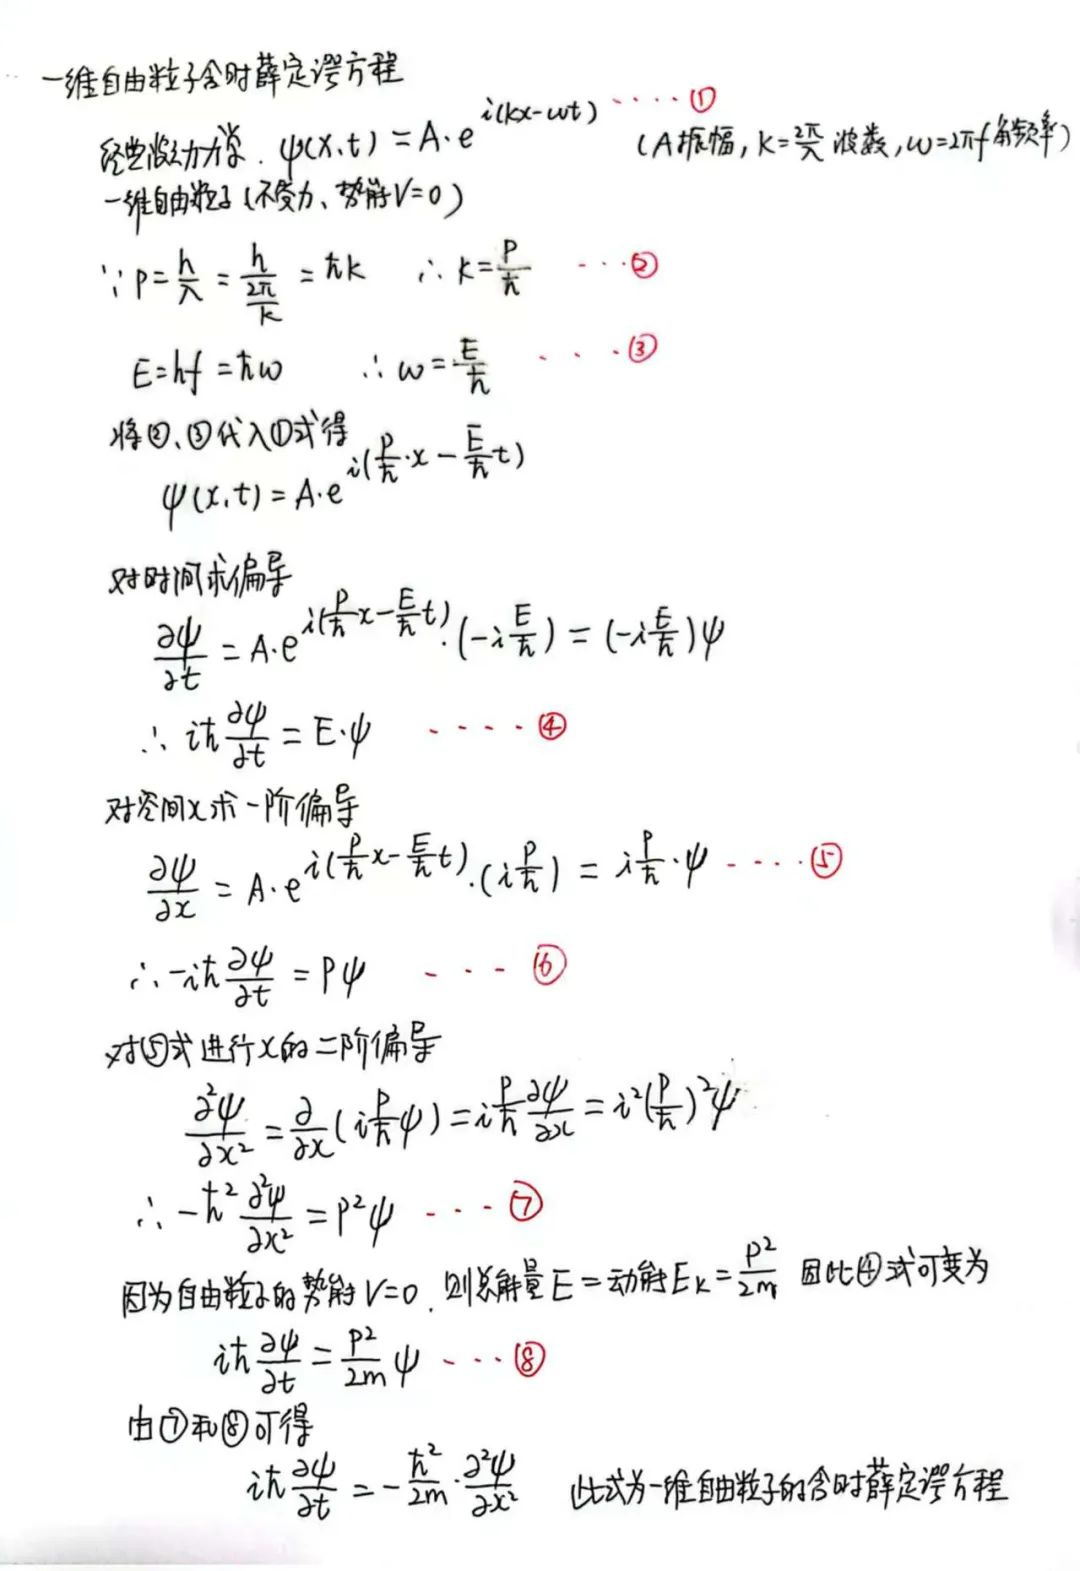 一维自由粒子含时薛定谔方程
经典波动力学. ψ(x,t) = A·e^{i(kx-ωt)} ····①
(A振幅, k=2π/λ 波数, ω=2πf 角频率)
一维自由粒子(不受力、势能V=0)
∵ P=h/λ = h/(2π/k) = ħk ∴ k=P/ħ ···②
E=hf=ħω ∴ ω=E/ħ ···③
将②、③代入①式得
ψ(x,t) = A·e^{i(P/ħ·x - E/ħ t)}
对时间求偏导
∂ψ/∂t = A·e^{i(P/ħ x - E/ħ t)}·(-i E/ħ) = (-i E/ħ)ψ
∴ iħ ∂ψ/∂t = E·ψ ····④
对空间x求一阶偏导
∂ψ/∂x = A·e^{i(P/ħ x - E/ħ t)}·(i P/ħ) = i P/ħ·ψ ····⑤
∴ -iħ ∂ψ/∂t = Pψ ···⑥
对⑤式进行x的二阶偏导
∂²ψ/∂x² = ∂/∂x (i P/ħ ψ) = i P/ħ ∂ψ/∂x = i²(P/ħ)²ψ
∴ -ħ² ∂²ψ/∂x² = P²ψ ···⑦
因为自由粒子的势能V=0. 则总能量E=动能E_k=P²/2m 因此④式可变为
iħ ∂ψ/∂t = P²/2m ψ ···⑧
由⑦和⑧可得
iħ ∂ψ/∂t = -ħ²/2m · ∂²ψ/∂x² 此式为一维自由粒子的含时薛定谔方程